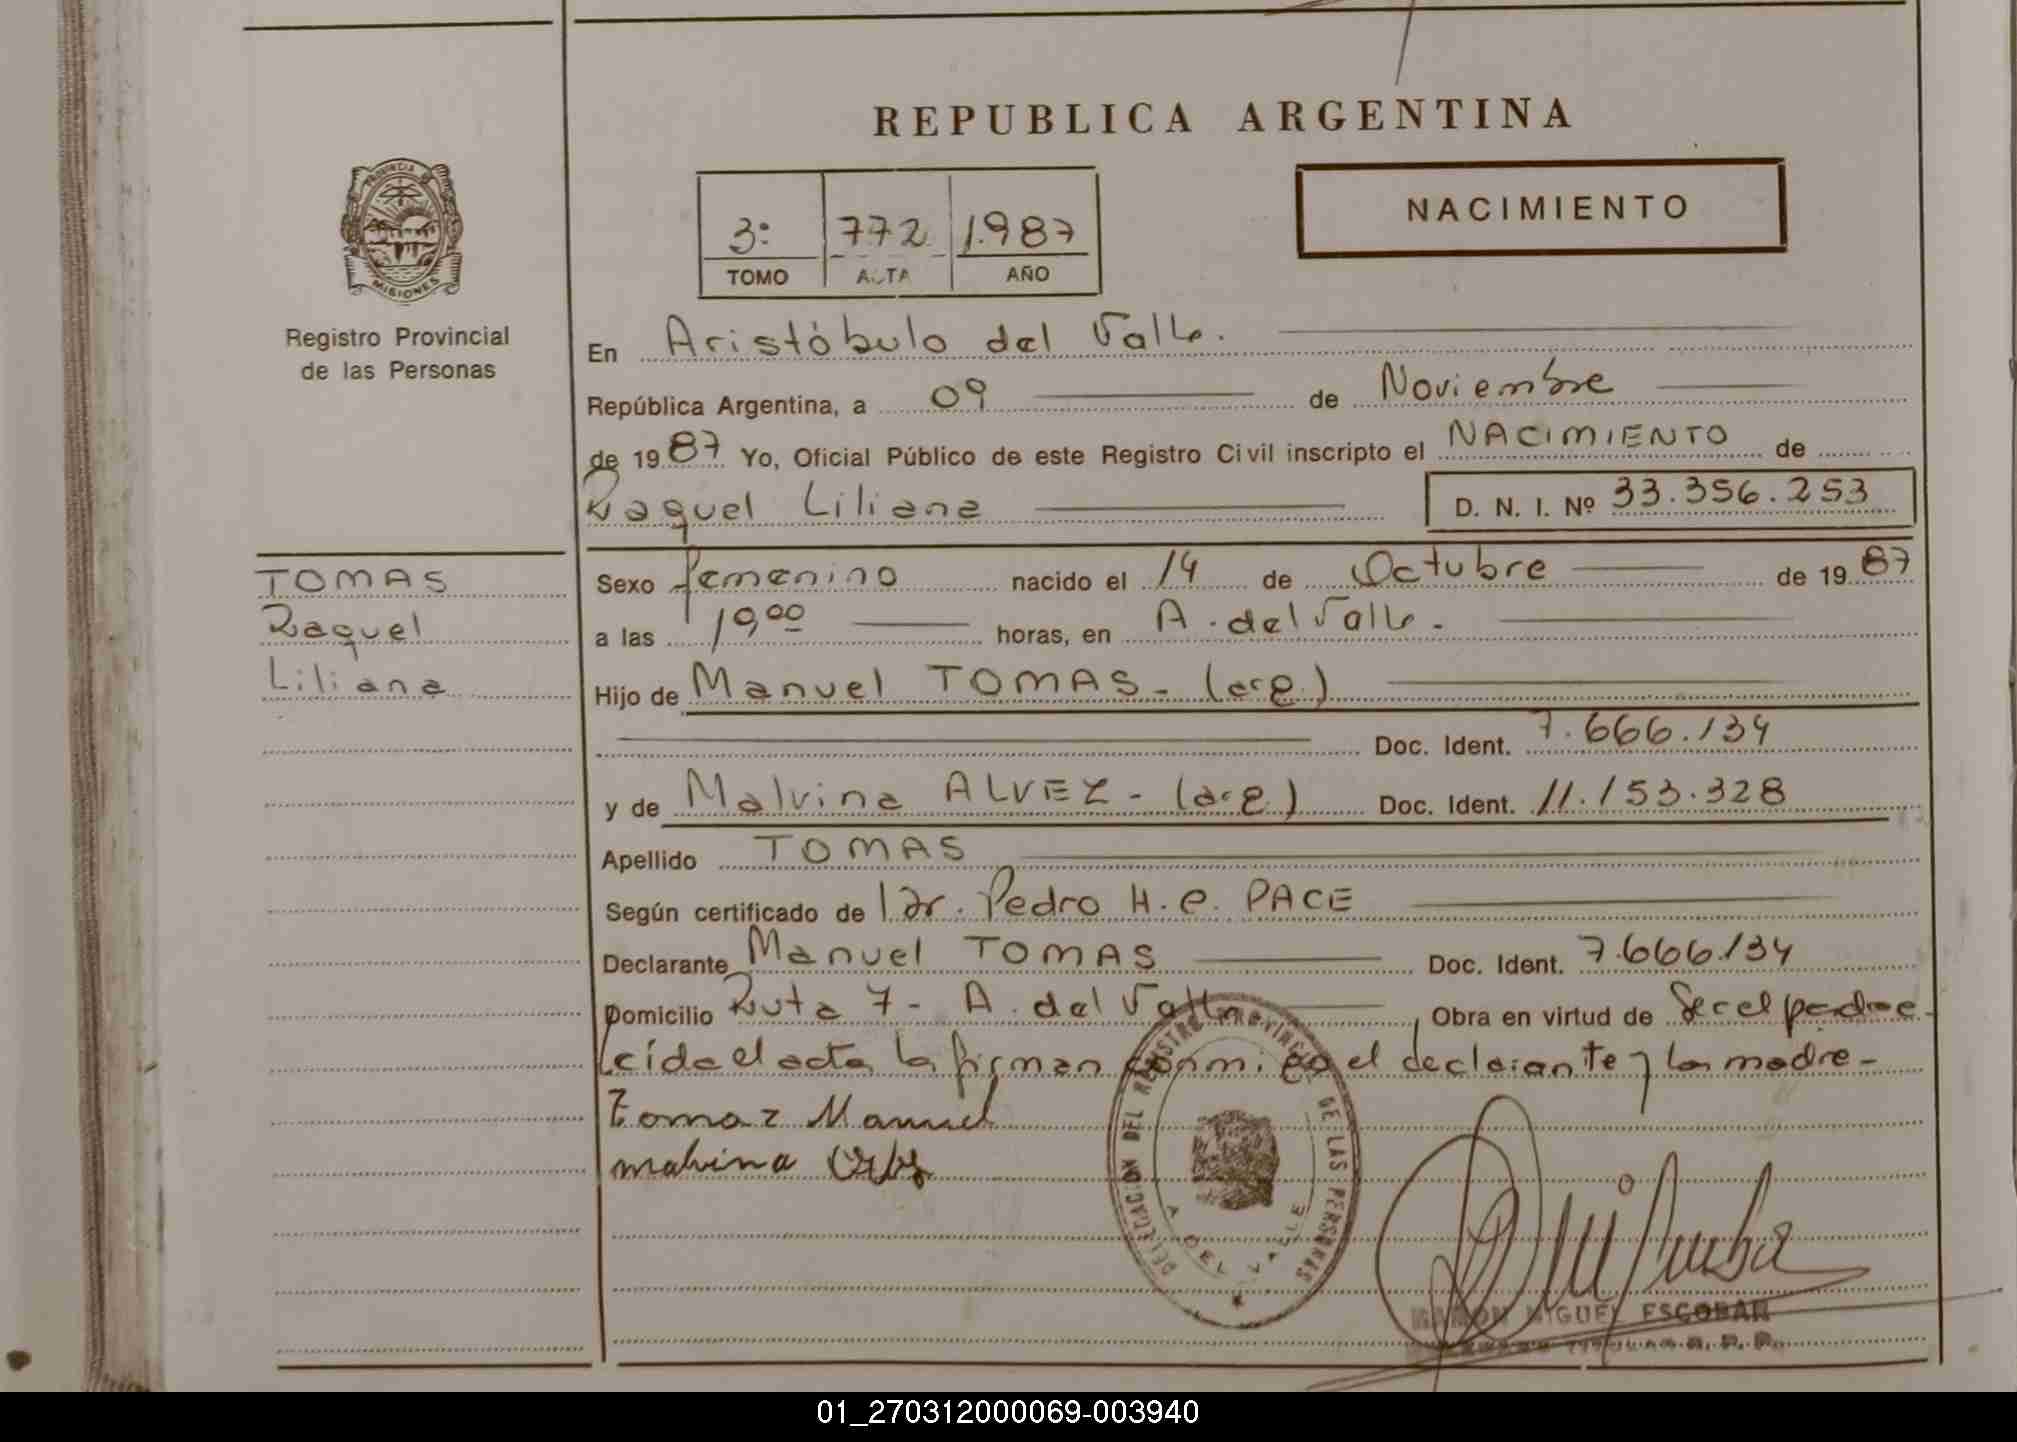 REPUBLICA ARGENTINA
NACIMIENTO
3º 772 1.987
TOMO ACTA AÑO
PROVINCIA DE
MISIONES
Registro Provincial
de las Personas
En Aristóbulo del Valle.
República Argentina, a 09 de Noviembre
de 1987 Yo, Oficial Público de este Registro Civil inscripto el NACIMIENTO de
Raquel Liliana D. N. I. Nº 33.356.253
TOMAS
Raquel
Liliana
Sexo femenino nacido el 14 de Octubre de 1987
a las 19,00 horas, en A. del Valle.
Hijo de Manuel TOMAS - (arg.)
Doc. Ident. 7.666.134
y de Malvina ALVEZ - (arg.) Doc. Ident. 11.153.328
Apellido TOMAS
Según certificado de Dr. Pedro H. C. PACE
Declarante Manuel TOMAS Doc. Ident. 7.666.134
Domicilio Ruta 7 - A. del Valle Obra en virtud de Ser el padre -
Leída el acta la firman conmigo el declarante y la madre -
Tomaz Manuel
malvina
DELEGACION DEL REGISTRO PROVINCIAL DE LAS PERSONAS
A. DEL VALLE
RAMON MIGUEL ESCOBAR
TITULAR R. P. P.
01_270312000069-003940